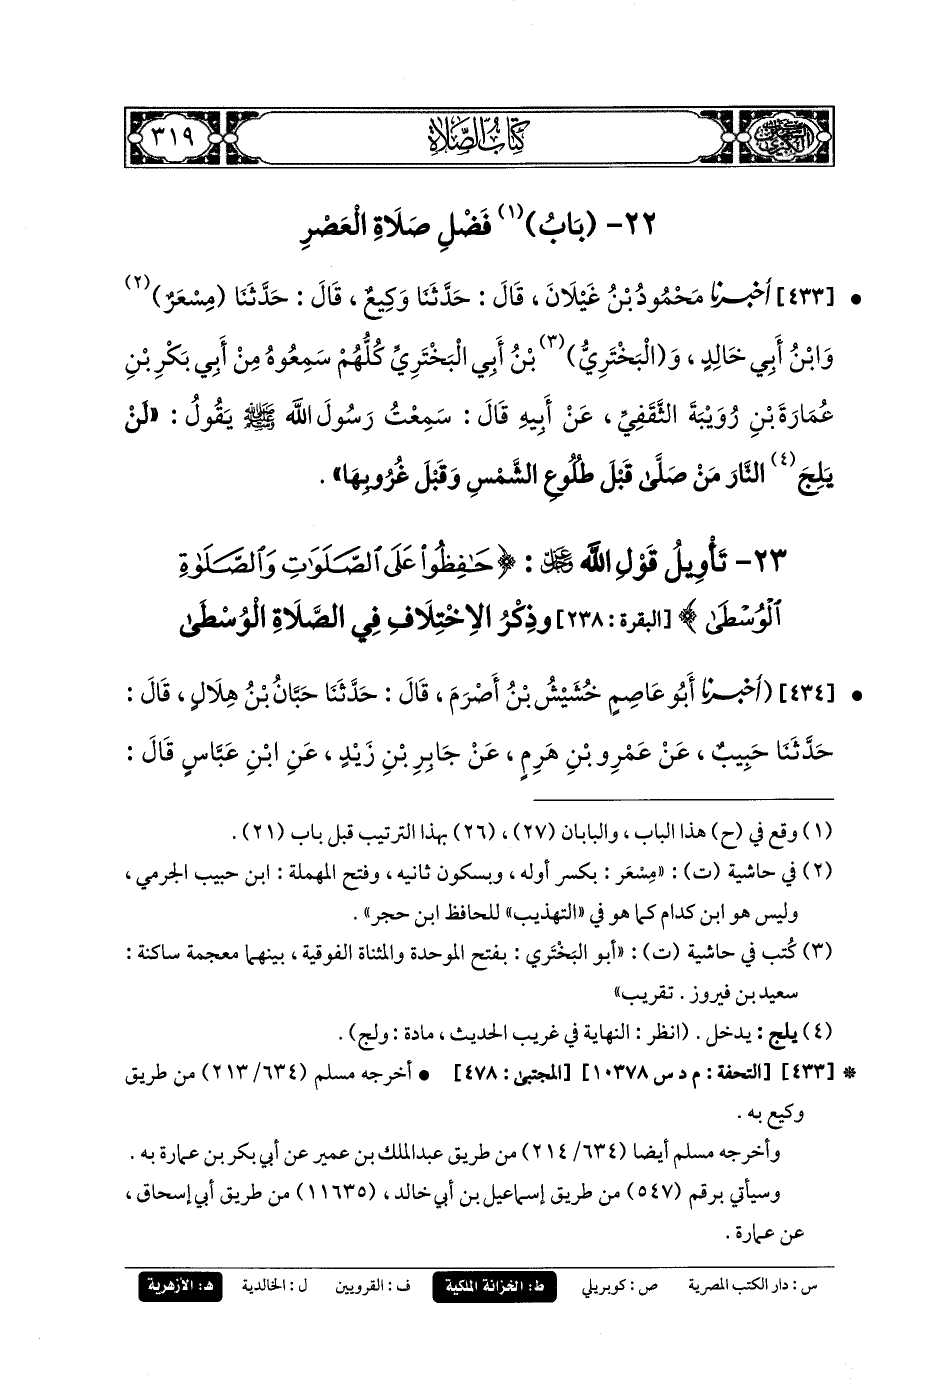 كتاب الصلاة
٣١٩
٢٢- (بَابُ)(١) فَضْلِ صَلَاةِ الْعَصْرِ
• [٤٣٣] أَخْبَرَنَا مَحْمُودُ بْنُ غَيْلَانَ، قَالَ: حَدَّثَنَا وَكِيعٌ، قَالَ: حَدَّثَنَا (مِسْعَرٌ)(٢)
وَابْنُ أَبِي خَالِدٍ، وَ(الْبَخْتَرِيُّ)(٣) بْنُ أَبِي الْبَخْتَرِيِّ كُلُّهُمْ سَمِعُوهُ مِنْ أَبِي بَكْرِ بْنِ
عُمَارَةَ بْنِ رُوَيْبَةَ الثَّقَفِيِّ، عَنْ أَبِيهِ قَالَ: سَمِعْتُ رَسُولَ اللَّهِ ﷺ يَقُولُ: «لَنْ
يَلِجَ(٤) النَّارَ مَنْ صَلَّىٰ قَبْلَ طُلُوعِ الشَّمْسِ وَقَبْلَ غُرُوبِهَا».
٢٣- تَأْوِيلُ قَوْلِ اللَّهِ ﷻ: ﴿حَٰفِظُوا۟ عَلَى ٱلصَّلَوَٰتِ وَٱلصَّلَوٰةِ
ٱلْوُسْطَىٰ﴾ [البقرة: ٢٣٨] وذِكْرُ الِاخْتِلَافِ فِي الصَّلَاةِ الْوُسْطَىٰ
• [٤٣٤] (أَخْبَرَنَا أَبُو عَاصِمٍ خُشَيْشُ بْنُ أَصْرَمَ، قَالَ: حَدَّثَنَا حَبَّانُ بْنُ هِلَالٍ، قَالَ:
حَدَّثَنَا حَبِيبٌ، عَنْ عَمْرِو بْنِ هَرِمٍ، عَنْ جَابِرِ بْنِ زَيْدٍ، عَنِ ابْنِ عَبَّاسٍ قَالَ:
(١) وقع في (ح) هذا الباب، والبابان (٢٧)، (٢٦) بهذا الترتيب قبل باب (٢١).
(٢) في حاشية (ت): «مِسْعَر: بكسر أوله، وبسكون ثانيه، وفتح المهملة: ابن حبيب الجرمي،
وليس هو ابن كدام كما هو في «التهذيب» للحافظ ابن حجر».
(٣) كُتب في حاشية (ت): «أبو البَخْتَري: بفتح الموحدة والمثناة الفوقية، بينهما معجمة ساكنة:
سعيد بن فيروز. تقريب»
(٤) يلج: يدخل. (انظر: النهاية في غريب الحديث، مادة: ولج).
* [٤٣٣] [التحفة: م د س ١٠٣٧٨] [المجتبى: ٤٧٨] • أخرجه مسلم (٦٣٤/ ٢١٣) من طريق
وكيع به.
وأخرجه مسلم أيضا (٦٣٤/ ٢١٤) من طريق عبدالملك بن عمير عن أبي بكر بن عمارة به.
وسيأتي برقم (٥٤٧) من طريق إسماعيل بن أبي خالد، (١١٦٣٥) من طريق أبي إسحاق،
عن عمارة.
س: دار الكتب المصرية ص: كوبريلي ط: الخزانة الملكية ف: القرويين ل: الخالدية هـ: الأزهرية